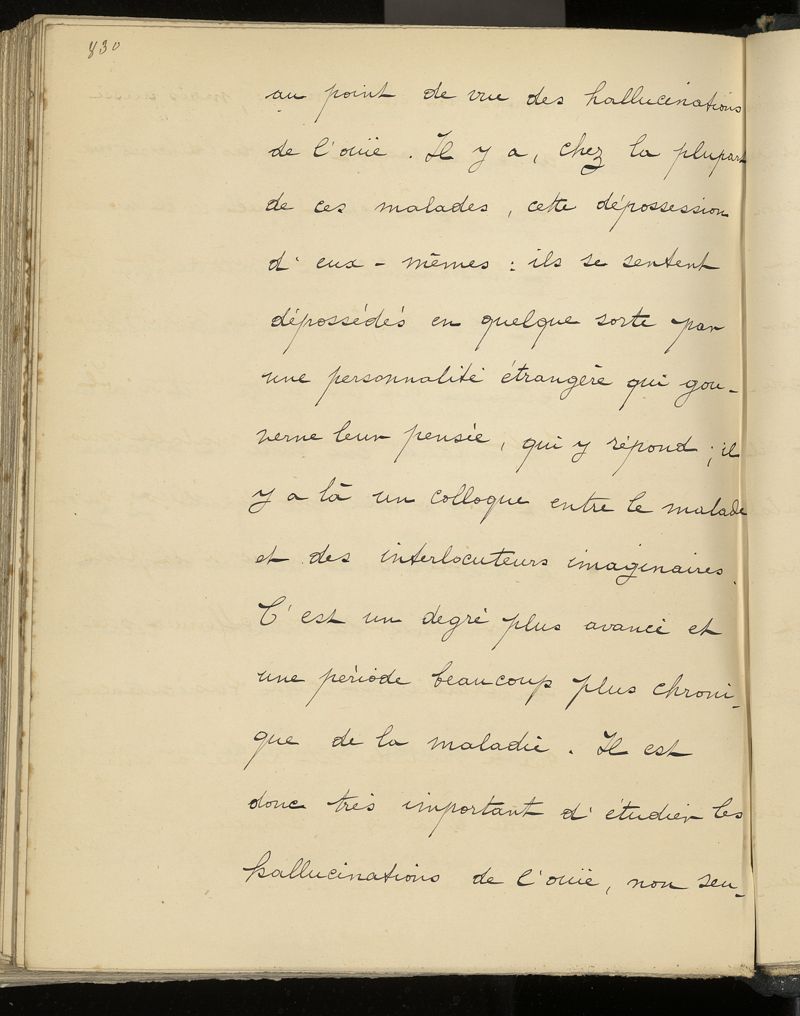 830
au point de vue des hallucinations
de l'ouïe. Il y a, chez la plupart
de ces malades, cette dépossession
d'eux-mêmes : ils se sentent
dépossédés en quelque sorte par
une personnalité étrangère qui gou-
verne leur pensée, qui y répond ; il
y a là un colloque entre le malade
et des interlocuteurs imaginaires.
C'est un degré plus avancé et
une période beaucoup plus chroni-
que de la maladie. Il est
donc très important d'étudier les
hallucinations de l'ouïe, non seu-